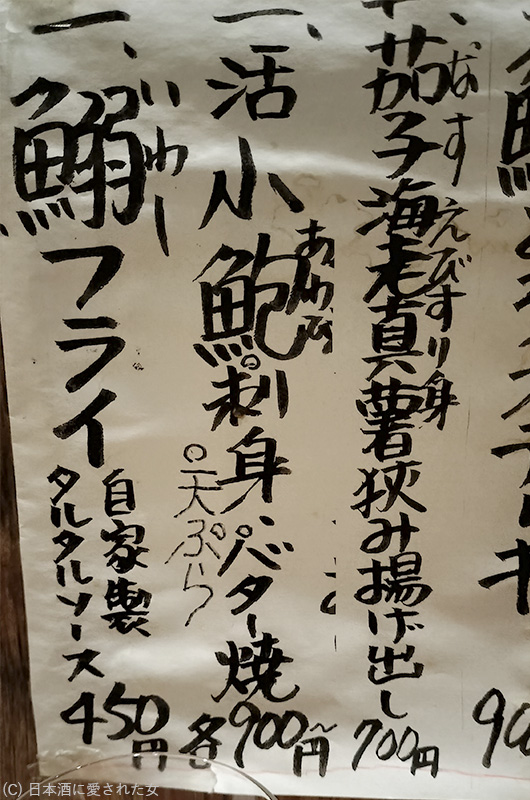 茄子海老真薯狭み揚げ出し 700円
なす
えびすり身
一、活小鮑刺身、バター焼 各900〜円
あわび
天ぷら
一、鰯フライ
いわし
自家製
タルタルソース
450円
(C) 日本酒に愛された女